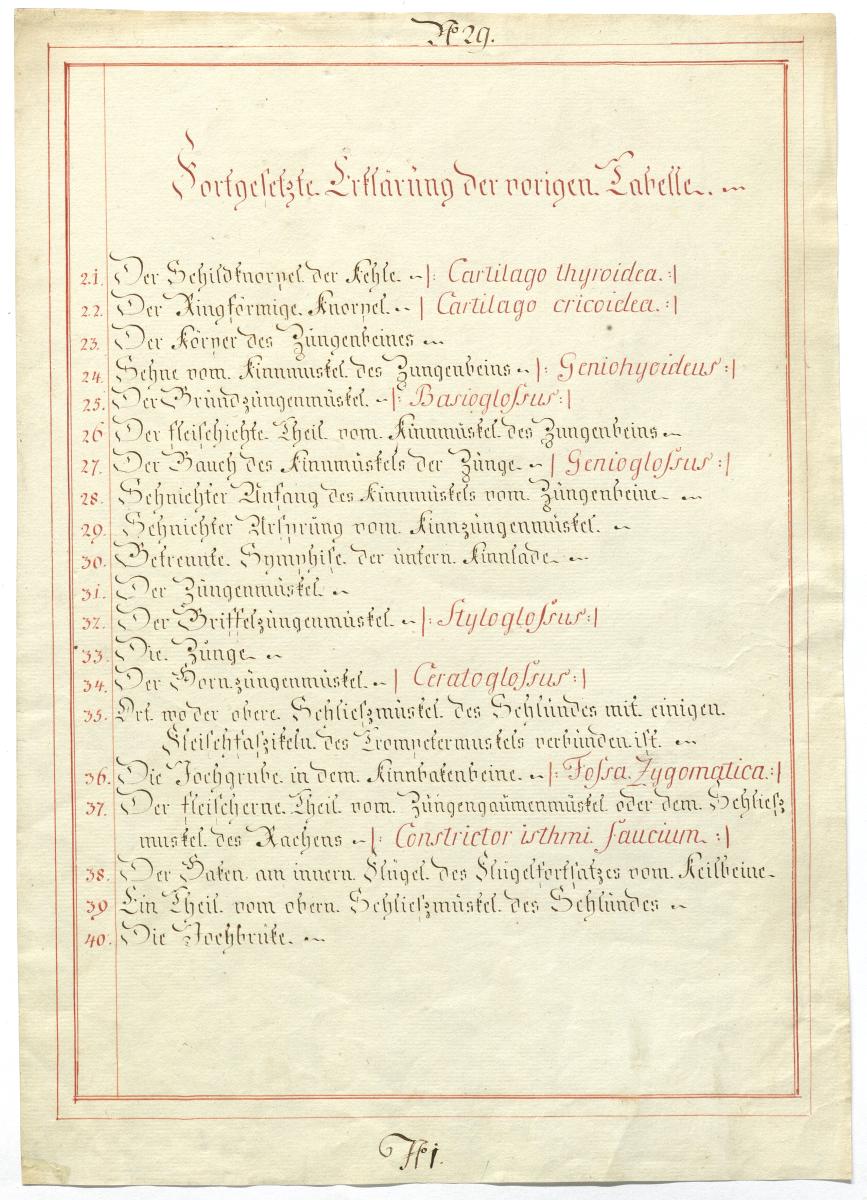 No 29.
Fortgesetzte Erklärung der vorigen Tabelle.
21. Der Schildknorpel der Kehle. |: Cartilago thyroidea. :|
22. Der Ringförmige Knorpel. | Cartilago cricoidea. :|
23. Der Körper des Zungenbeines
24. Sehne vom Kinnmuskel des Zungenbeins |: Geniohyoideus :|
25. Der Grundzüngenmüskel. |: Basioglossus :|
26 Der fleischichte Theil vom Kinnmüskel des Zungenbeins
27. Der Bauch des Kinnmüskels der Zünge | Genioglossus :|
28. Sehnichter Anfang des Kinnmüskels vom Züngenbeine
29. Sehnichter Ursprüng vom Kinnzüngenmüskel.
30. Getrennte Symphise der üntern Kinnlade
31. Der Züngenmüskel.
32. Der Griffelzüngenmüskel. |: Styloglossus :|
33. Die Zünge
34. Der Hornzüngenmüskel. | Ceratoglossus :|
35. Ort wo der obere Schlieszmüskel des Schlündes mit einigen
Fleischfaszikeln des Trompetermuskels verbünden ist.
36. Die Jochgrube in dem Kinnbakenbeine. |: Fossa Zygomatica. :|
37. Der fleischerne Theil vom Züngengaümenmüskel oder dem Schliesz
muskel des Rachens |: Constrictor isthmi faucium. :|
38. Der Haken am innern Flügel des Flügelfortsatzes vom Keilbeine
39 Ein Theil vom obern Schlieszmüskel des Schlündes
40. Die Jochbrüke.